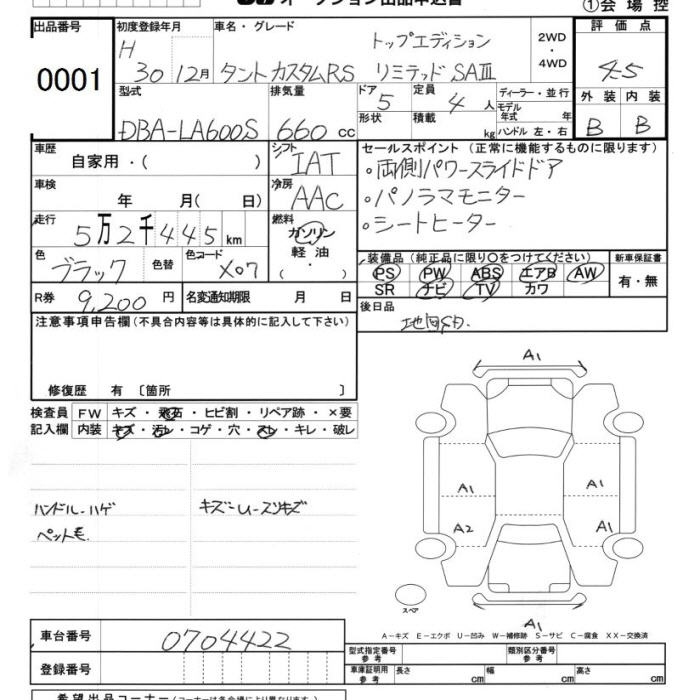 オークション出品申込書
①会場控
出品番号 初度登録年月 車名・グレード 評価点
0001 H 30 12月 トップエディション 2WD・4WD 4.5
タントカスタムRS リミテッド SAⅢ
型式 排気量 ドア 5 定員 4人 ディーラー・並行 外装 内装
DBA-LA600S 660cc 形状 積載 kg モデル年式 年 B B
ハンドル 左・右
車歴 シフト セールスポイント(正常に機能するものに限ります)
自家用・( ) IAT ・両側パワースライドドア
車検 冷房 ・パノラマモニター
年 月(日) AAC ・シートヒーター
走行 燃料
5万2千445km ガソリン
軽油
・
色 色替 色コード 装備品(純正品に限り○をつけてください) 新車保証書
ブラック X07 PS PW ABS エアB AW 有・無
SR ナビ TV カワ
R券 9,200円 名変通知期限 月 日 後日品
注意事項申告欄(不具合内容等は具体的に記入して下さい)
修復歴 有 〔箇所 〕
検査員 FW キズ・飛石・ヒビ割・リペア跡・×要
記入欄 内装 キズ・汚レ・コゲ・穴・スレ・キレ・破レ
ハンドル-ハゲ
ペット毛
A1
A1 A1
A2 A1
A1
スペア
A-キズ E-エクボ U-凹み W-補修跡 S-サビ C-腐食 XX-交換済
車台番号 0704422 型式指定番号 参考 類別区分番号 参考
登録番号 車庫証明用 参考 長さ cm 幅 cm 高さ cm
希望出品コーナー(コーナーは各会場により異なります)